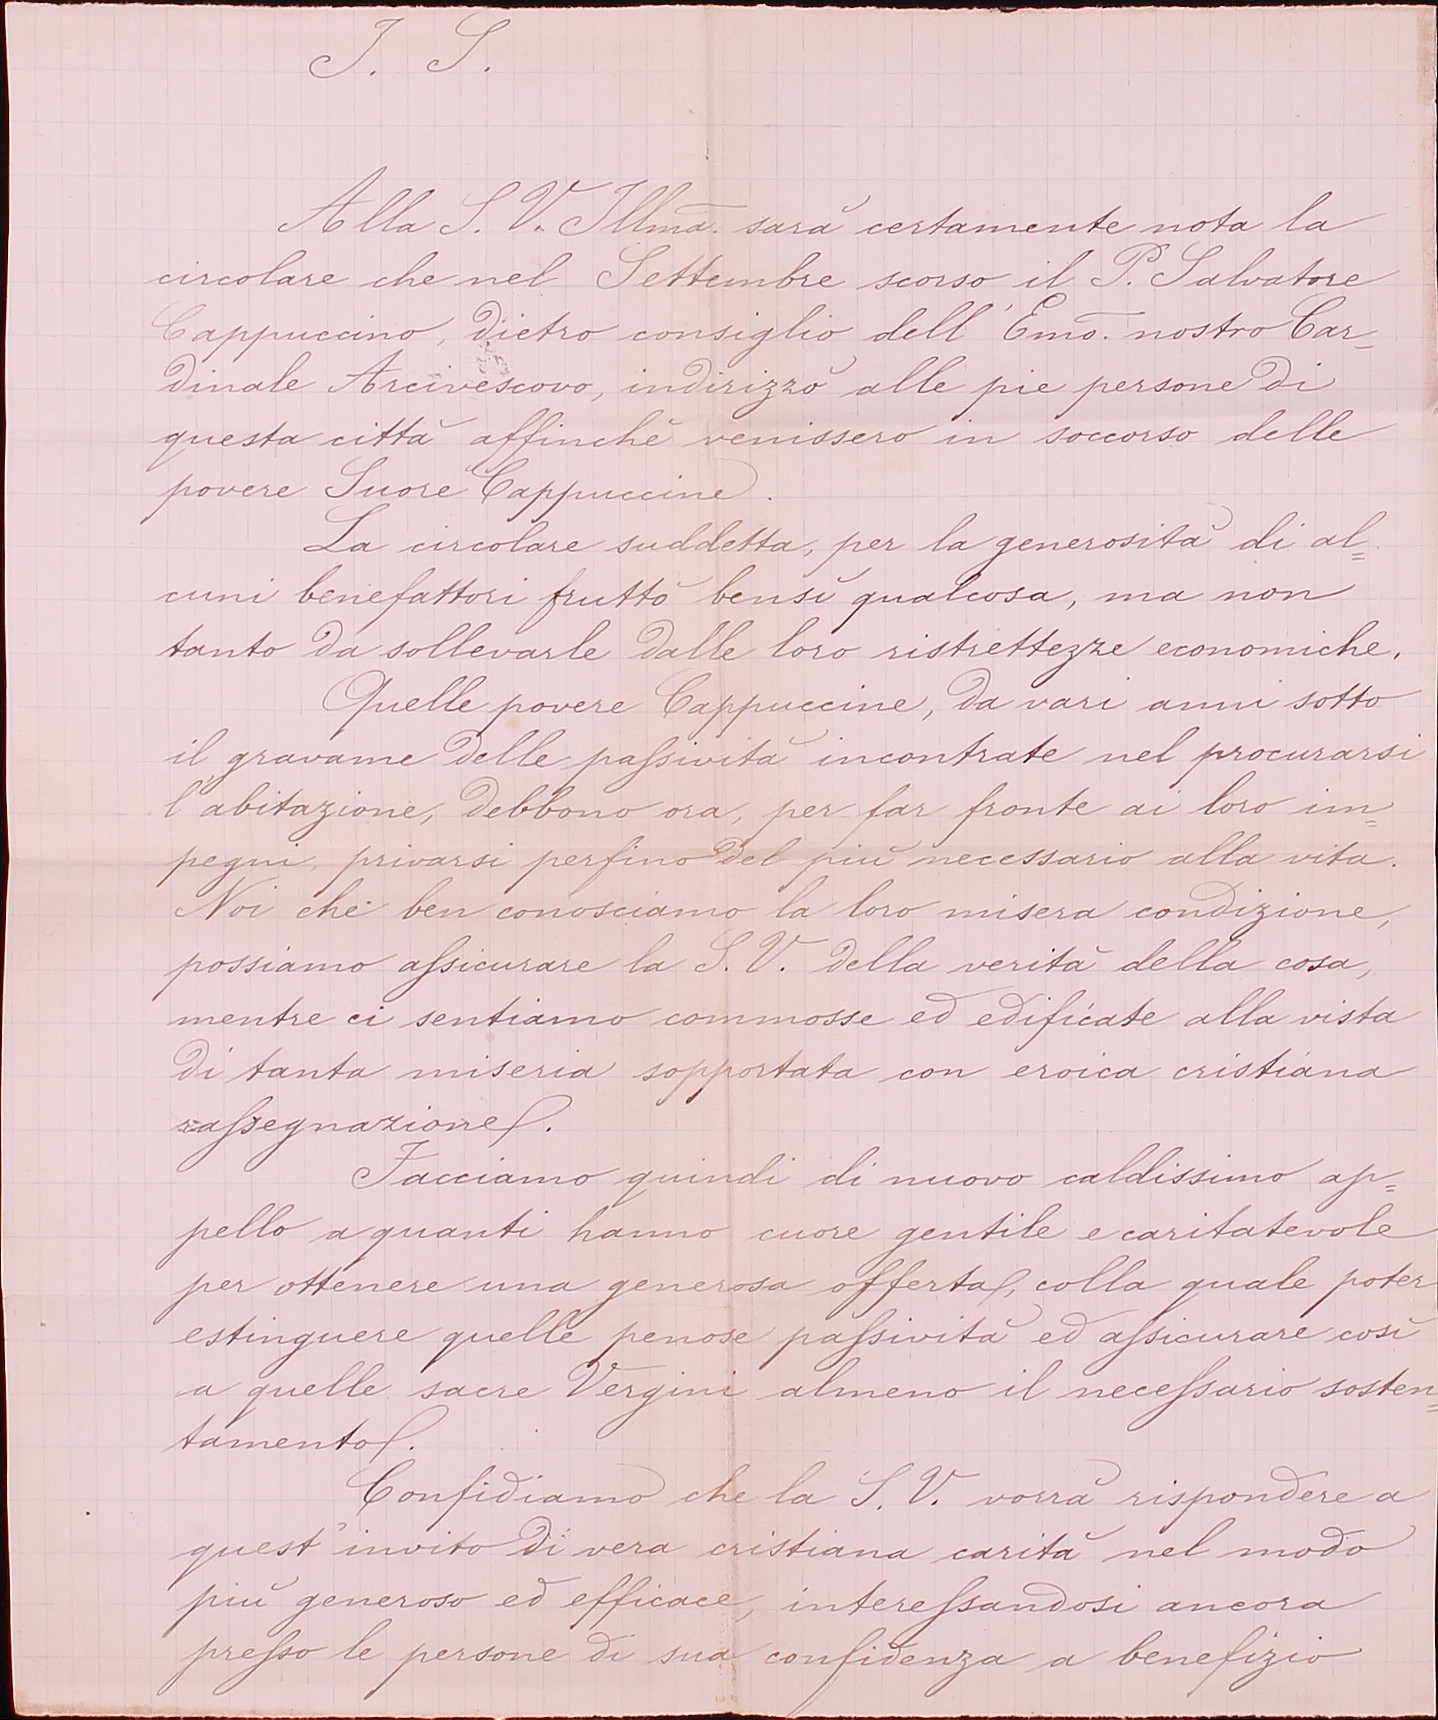 I. S.
Alla S. V. Illma. sarà certamente nota la
circolare che nel Settembre scorso il P. Salvatore
Cappuccino, dietro consiglio dell'Emo. nostro Car_
dinale Arcivescovo, indirizzò alle pie persone di
questa città affinchè venissero in soccorso delle
povere Suore Cappuccine.
La circolare suddetta, per la generosità di al=
cuni benefattori fruttò bensì qualcosa, ma non
tanto da sollevarle dalle loro ristrettezze economiche.
Quelle povere Cappuccine, da vari anni sotto
il gravame delle passività incontrate nel procurarsi
l'abitazione, debbono ora, per far fronte ai loro im=
pegni, privarsi perfino del più necessario alla vita.
Noi che ben conosciamo la loro misera condizione,
possiamo assicurare la S. V. della verità della cosa,
mentre ci sentiamo commosse ed edificate alla vista
di tanta miseria sopportata con eroica cristiana
rassegnazione.
Facciamo quindi di nuovo caldissimo ap=
pello a quanti hanno cuore gentile e caritatevole
per ottenere una generosa offerta, colla quale poter
estinguere quelle penose passività ed assicurare così
a quelle sacre Vergini almeno il necessario sosten=
tamento.
Confidiamo che la S. V. vorrà rispondere a
quest'invito di vera cristiana carità nel modo
più generoso ed efficace, interessandosi ancora
presso le persone di sua confidenza a benefizio